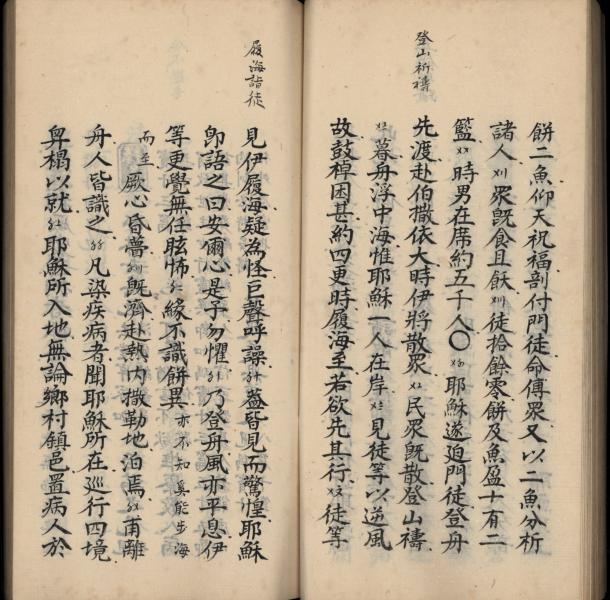 登山祈禱
餅二魚仰天祝福剖付門徒命傳眾又以二魚分析
諸人眾既食且飫徒拾餘零餅及魚盈十有二
籃時男在席約五千人〇耶穌遂迫門徒登舟
先渡赴伯撒依大時伊將散眾民眾既散登山禱
暮舟浮中海惟耶穌一人在岸見徒等以逆風
故鼓棹因甚約四更時履海至若欲先其行徒等
履海詣徒
見伊履海疑為怪巨聲呼譟葢皆見而驚惶耶穌
卽語之曰安爾心是予勿懼乃登舟風亦平息伊
等更覺無任眩怖緣不識餅異亦不知奚能步海
而至厥心昏夢既濟赴熱內撒勒地泊焉甫離
舟人皆識之凡染疾病者聞耶穌所在巡行四境
舁榻以就耶穌所入地無論鄉村鎮邑置病人於